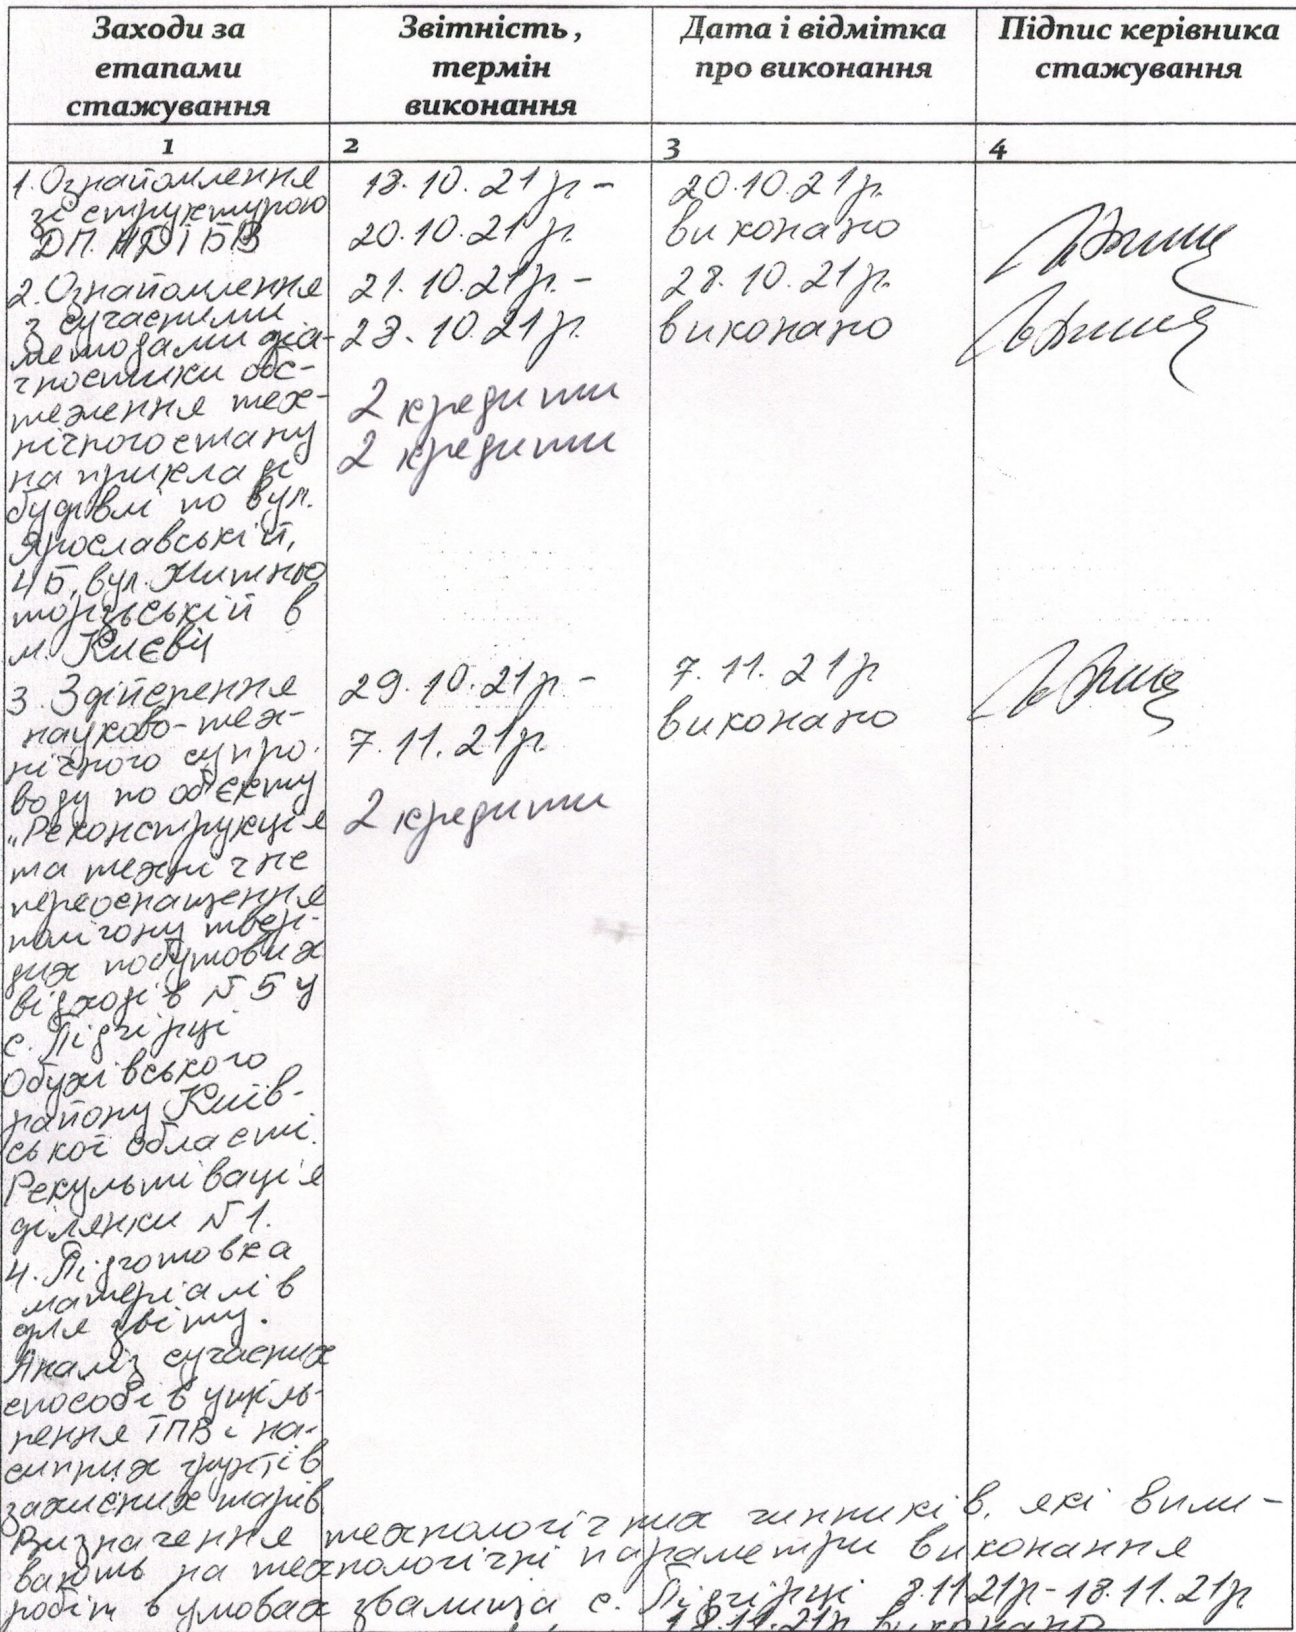 Заходи за
етапами
стажування
Звітність ,
термін
виконання
Дата і відмітка
про виконання
Підпис керівника
стажування
1
2
3
4
1. Ознайомлення
зі структурою
ДП. НДІБВ
18.10.21р -
20.10.21р.
20.10.21р.
виконано
2. Ознайомлення
з сучасними
методами діа-
гностики обс-
теження тех-
нічного стану
на прикладі
будівлі по вул.
Ярославській,
4Б, вул. Житньо
торзьській в
м. Києві
21.10.21р. -
28.10.21р.
2 кредити
2 кредити
28.10.21р.
виконано
3. Здійснення
науково-тех-
нічного супро-
воду по об'єкту
"Реконструкція
та технічне
переоснащення
полігону твер-
дих побутових
відходів №5 у
с. Підгірці
Обухівського
району Київ-
ської області.
Рекультивація
ділянки №1.
29.10.21р -
7.11.21р.
2 кредити
7.11.21р
виконано
4. Підготовка
матеріалів
для звіту.
Аналіз сучасних
способів ущіль-
нення ТПВ і на-
сипних ґрунтів
захисних шарів
Визначення технологічних чинників, які впли-
вають на технологічні параметри виконання
робіт в умовах звалища с. Підгірці 8.11.21р-18.11.21р
18.11.21р виконано